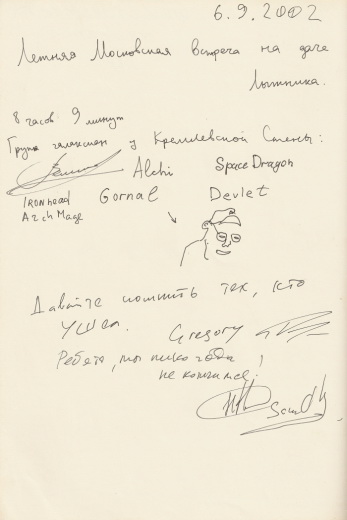 6.9.2002
Летняя Московская встреча на даче
Лытника.
8 часов 9 минут
Група галаксиан у Кремлевской Стены:
Alchi SpaceDragon
IRONhead Gornal Devlet
ArchMage
Давайте помнить тех, кто
ушел. Gregory
Ребята, мы никогда
не кончимся!